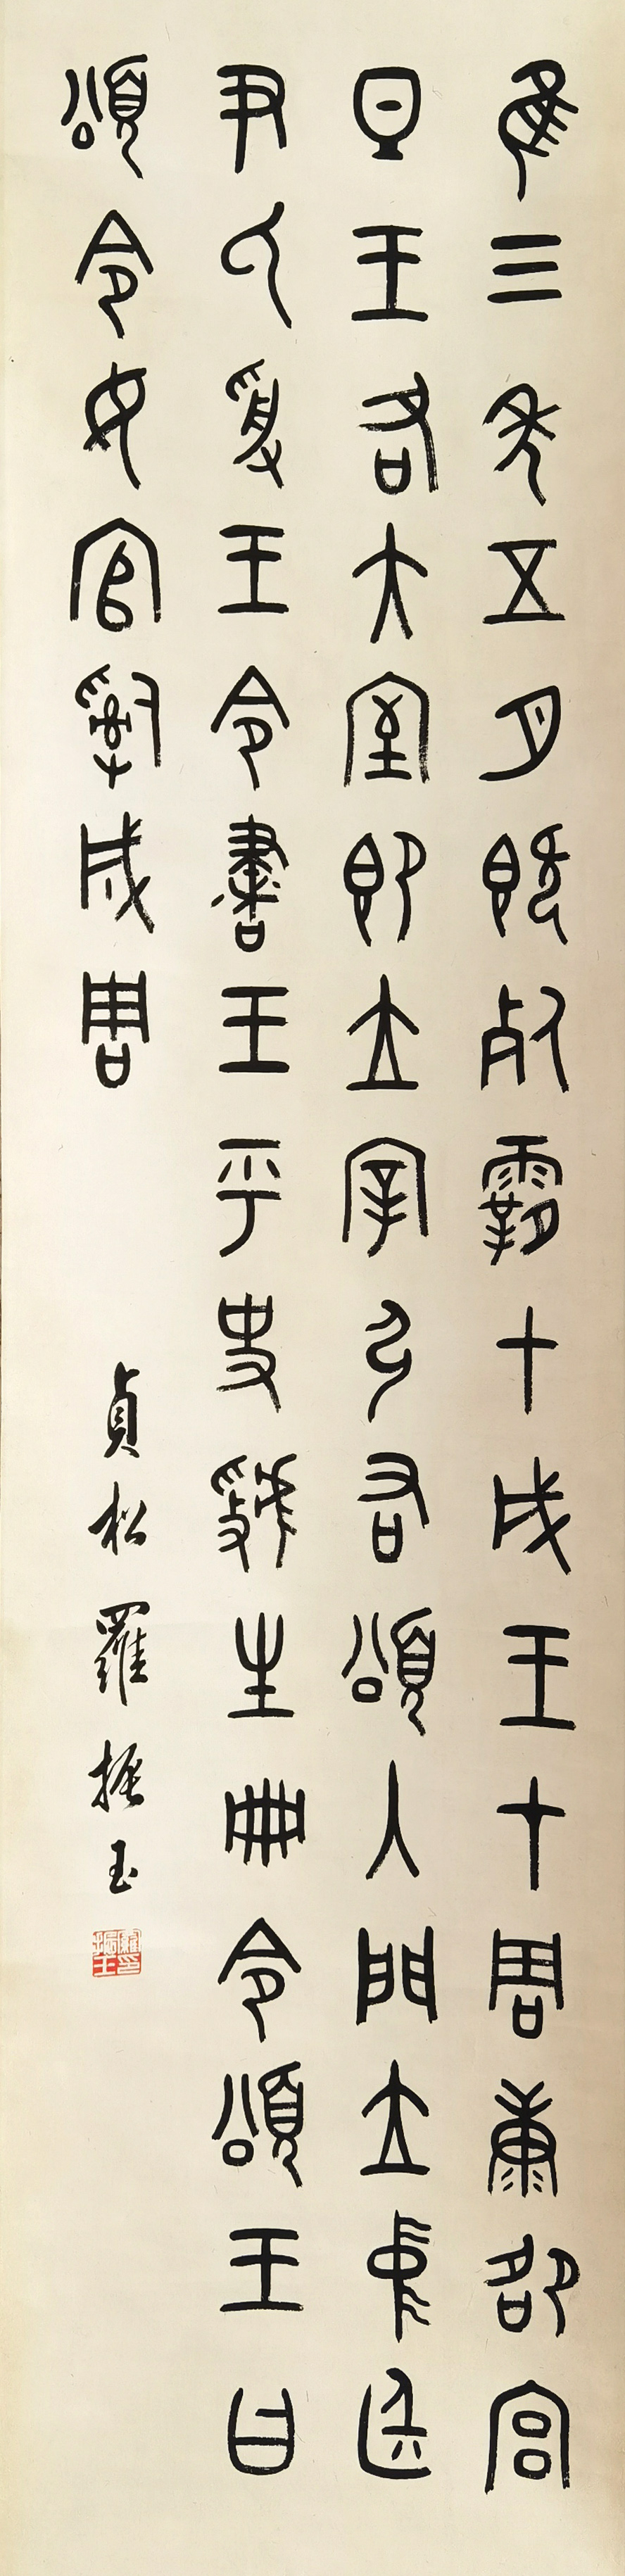 隹三年五月既死霸甲戌王才周康卲宮
旦王各大室即立宰弘右頌入門立中廷
尹氏受王令書王乎史虢生冊令頌王曰
頌令女官𤔲成周
貞松羅振玉
羅振玉印